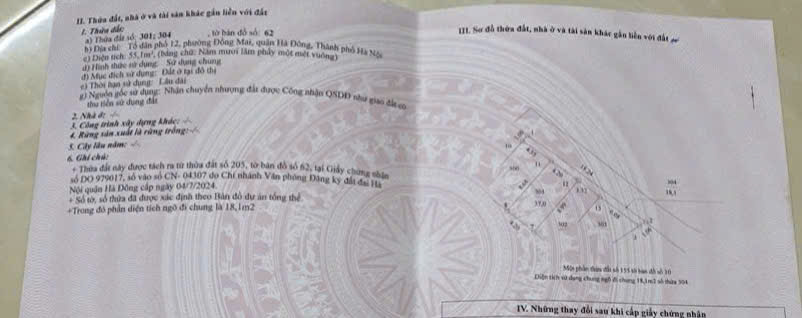 II. Thửa đất, nhà ở và tài sản khác gắn liền với đất
1. Thửa đất:
a) Thửa đất số: 301; 304 , tờ bản đồ số: 62
b) Địa chỉ: Tổ dân phố 12, phường Đồng Mai, quận Hà Đông, Thành phố Hà Nội
c) Diện tích: 55,1m², (bằng chữ: Năm mươi lăm phẩy một mét vuông)
d) Hình thức sử dụng: Sử dụng chung
đ) Mục đích sử dụng: Đất ở tại đô thị
e) Thời hạn sử dụng: Lâu dài
g) Nguồn gốc sử dụng: Nhận chuyển nhượng đất được Công nhận QSDĐ như giao đất có
thu tiền sử dụng đất
2. Nhà ở: -/-
3. Công trình xây dựng khác: -/-
4. Rừng sản xuất là rừng trồng: -/-
5. Cây lâu năm: -/-
6. Ghi chú:
+ Thửa đất này được tách ra từ thửa đất số 205, tờ bản đồ số 62, tại Giấy chứng nhận
số DO 979017, số vào sổ CN- 04307 do Chi nhánh Văn phòng Đăng ký đất đai Hà
Nội quận Hà Đông cấp ngày 04/7/2024.
+ Số tờ, số thửa đã được xác định theo Bản đồ dự án tổng thể.
+Trong đó phần diện tích ngõ đi chung là 18,1m2
III. Sơ đồ thửa đất, nhà ở và tài sản khác gắn liền với đất
10
1
4.35
300
11
4.20
18.24
304
18,1
12
3.32
37,0
13
6.08
302
303
2
4.20
Một phần thửa đất số 155 tờ bản đồ số 10
Diện tích sử dụng chung ngõ đi chung 18,1m2 số thửa 304
IV. Những thay đổi sau khi cấp giấy chứng nhận